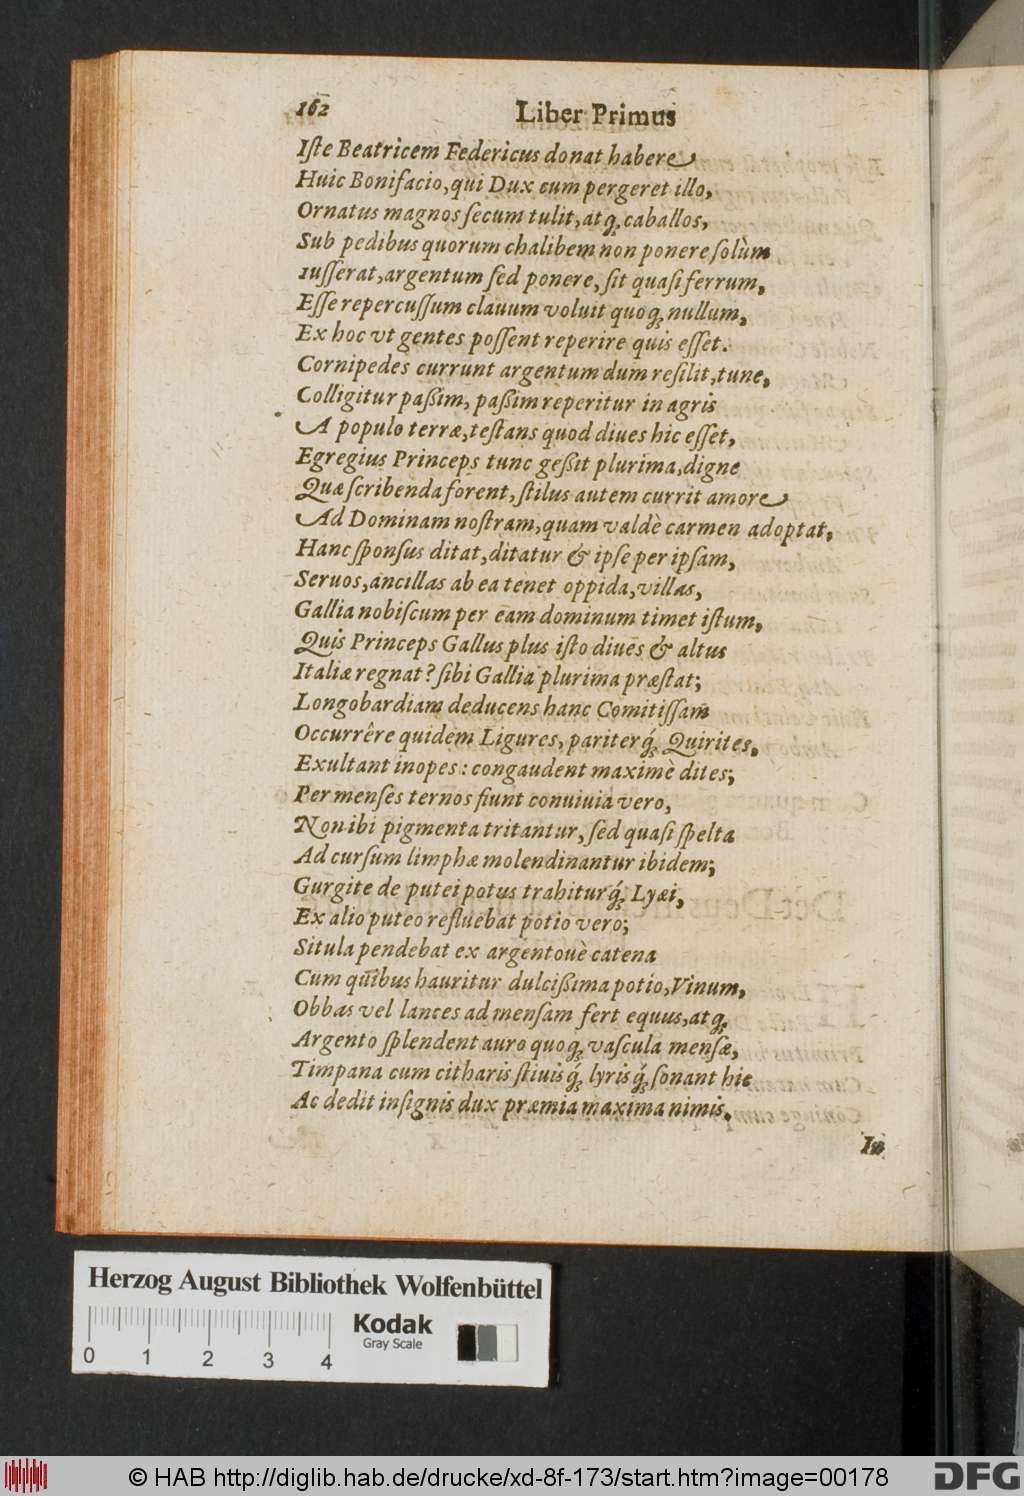 162 Liber Primus
Iſte Beatricem Federicus donat habere
Huic Bonifacio, qui Dux cum pergeret illo,
Ornatus magnos ſecum tulit, atq́; caballos,
Sub pedibus quorum chalibem non ponere ſolùm
iuſſerat, argentum ſed ponere, ſit quaſi ferrum,
Eſſe repercuſſum clauum voluit quoq; nullum,
Ex hoc vt gentes poſſent reperire quis eſſet.
Cornipedes currunt argentum dum reſilit, tunc,
Colligitur paßim, paßim reperitur in agris
A populo terræ, teſtans quod diues hic eſſet,
Egregius Princeps tunc geßit plurima, digne
Quæ ſcribenda forent, ſtilus autem currit amore
Ad Dominam noſtram, quam valdè carmen adoptat,
Hanc ſponſus ditat, ditatur & ipſe per ipſam,
Seruos, ancillas ab ea tenet oppida, villas,
Gallia nobiſcum per eam dominum timet iſtum,
Quis Princeps Gallus plus iſto diues & altus
Italiæ regnat? ſibi Gallia plurima præſtat;
Longobardiam deducens hanc Comitiſſam
Occurrêre quidem Ligures, pariterq́; Quirites,
Exultant inopes: congaudent maximè dites;
Per menſes ternos fiunt conuiuia vero,
Non ibi pigmenta tritantur, ſed quaſi ſpelta
Ad curſum limphæ molendinantur ibidem;
Gurgite de putei potus trahiturq́; Lyæi,
Ex alio puteo refluebat potio vero;
Situla pendebat ex argentouè catena
Cum quibus hauritur dulcißima potio, Vinum,
Obbas vel lances ad menſam fert equus, atq;
Argento ſplendent auro quoq; vaſcula menſæ,
Timpana cum citharis ſtiuisq́; lyrisq́; ſonant hic
Ac dedit inſignis dux præmia maxima nimis.
In
Herzog August Bibliothek Wolfenbüttel
Kodak
Gray Scale
0 1 2 3 4
© HAB http://diglib.hab.de/drucke/xd-8f-173/start.htm?image=00178
DFG